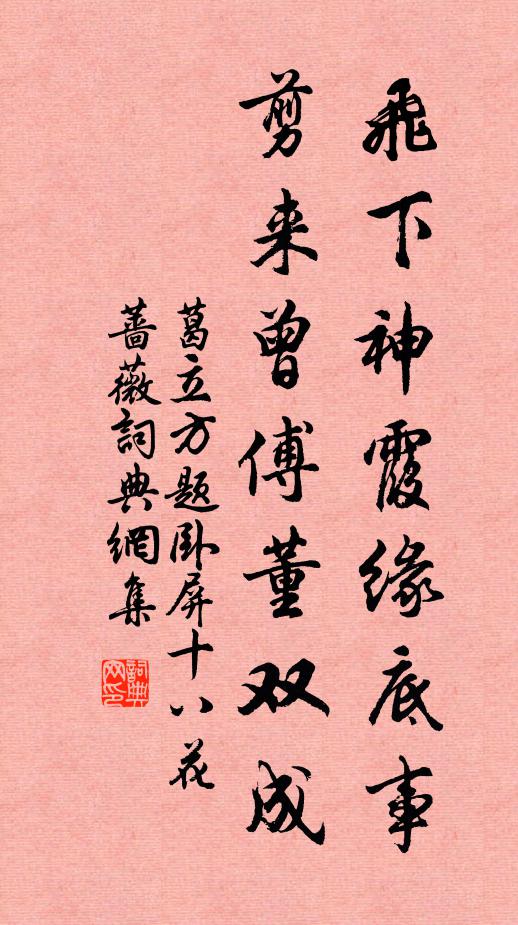 飛下神霞緣底事
剪来曾傅董双成
葛立方題卧屏十八花
薔薇詞典網集
詞典网印